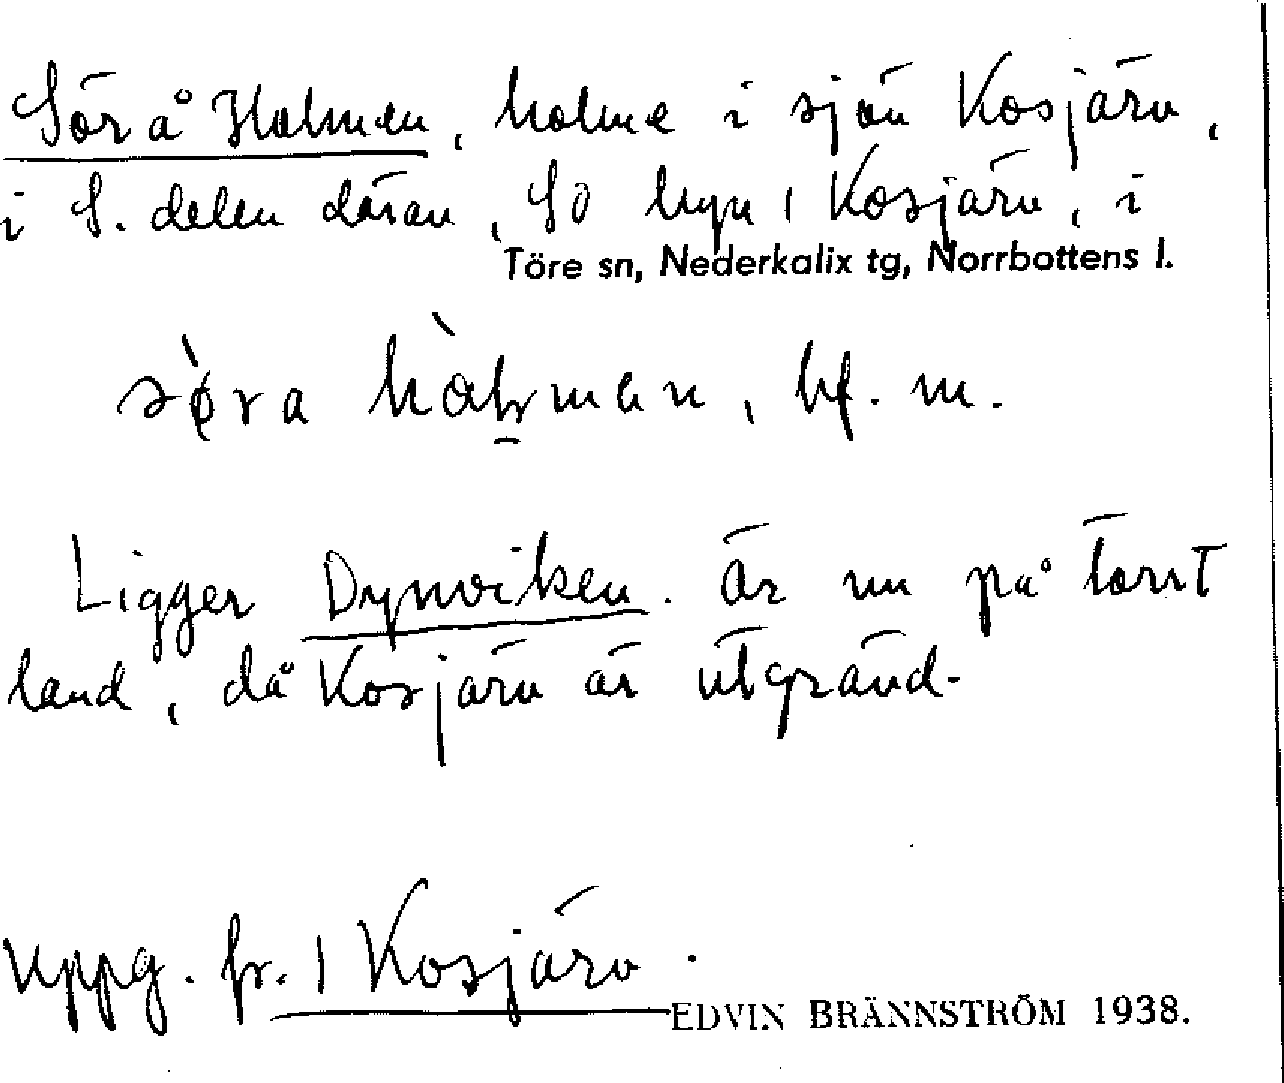 Sörå Holmen, holme i sjön Kosjärv,
i S. delen därav, SO byn 1 Kosjärv, i
Töre sn, Nederkalix tg, Norrbottens l.
bf. m.
Ligger Dynviken. Är nu på torrt
land, då Kosjärv är utgränd-
Uppg. fr. 1 Kosjärv.
EDVIN BRÄNNSTRÖM 1938.